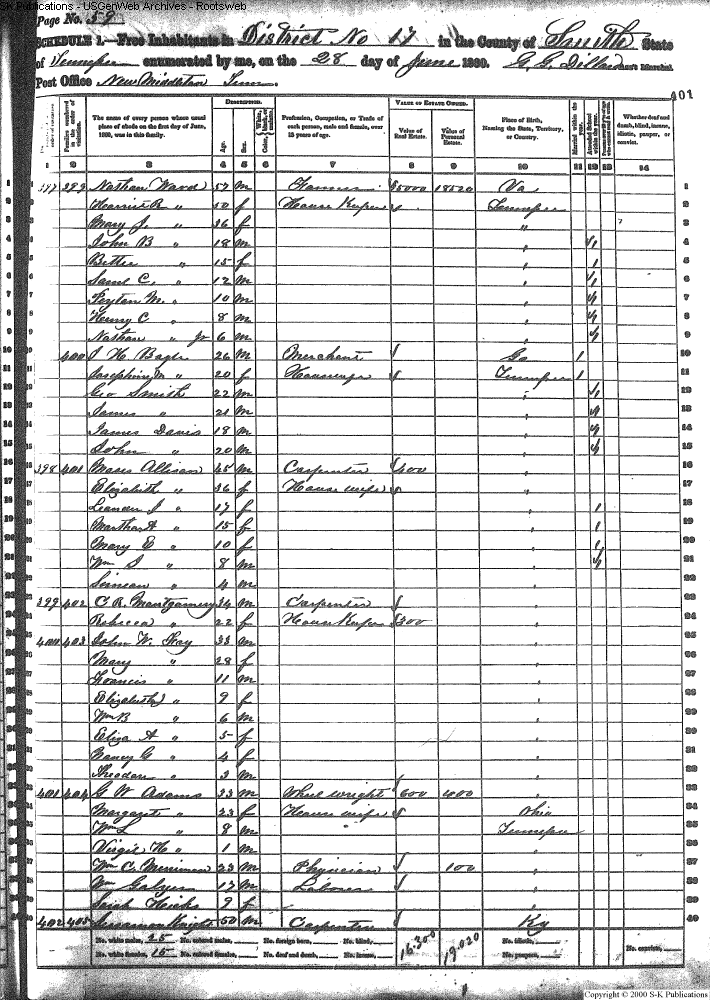 S-K Publications - USGenWeb Archives - Rootsweb
Page No. 59
SCHEDULE 1.—Free Inhabitants in District No 17 in the County of Smith State
of Tennessee enumerated by me, on the 28 day of June 1860. G. G. Dillard Ass't Marshal.
Post Office New Middleton Tenn.
401
DESCRIPTION. VALUE OF ESTATE OWNED.
Families numbered in the order of visitation. The name of every person whose usual place of abode on the first day of June, 1860, was in this family. Age. Sex. Profession, Occupation, or Trade of each person, male and female, over 15 years of age. Value of Real Estate. Value of Personal Estate. Place of Birth, Naming the State, Territory, or Country. Married within the year. Attended School within the year. Whether deaf and dumb, blind, insane, idiotic, pauper, or convict.
1 2 3 4 5 6 7 8 9 10 11 12 13 14
1 397 399 Nathan Ward 57 m Farmer $15000 18520 Va 1
2 Harriet R " 50 f House Keeper Tennessee 2
3 Mary J. " 36 f " 3
4 John B " 18 m " 1 4
5 Bettie " 15 f " 1 5
6 Saml C. " 12 m " 1 6
7 Peyton M. " 10 m " 1 7
8 Henry C " 8 m " 1 8
9 Nathan " Jr 6 m " 1 9
10 400 J H. 26 m Merchant Ga 1 10
11 Josephine M " 20 f Housewife Tennessee 1 11
12 Geo Smith 22 m " 1 12
13 James " 21 m " 1 13
14 James Davis 18 m " 1 14
15 John " 20 m " 1 15
16 398 401 Moses Allison 45 m Carpenter $400 " 16
17 Elizabeth " 36 f House wife " 17
18 Leander J " 17 f " 1 18
19 Martha A " 15 f " 1 19
20 Mary E " 10 f " 1 20
21 Wm S " 8 m " 1 21
22 Simean " 4 m " 22
23 399 402 C. R. Montgomery 34 m Carpenter " 23
24 Rebecca " 22 f House Keeper $300 " 24
25 400 403 John W. 33 m " 25
26 Mary " 28 f " 26
27 " 11 m " 27
28 Elizabeth " 9 f " 28
29 Wm B " 6 m " 29
30 Eliza A " 5 f " 30
31 Nancy G " 4 f " 31
32 Theodore " 3 m " 32
33 401 404 G W Adams 33 m Wheel wright $600 1000 " 33
34 Margaret " 23 f House wife Ohio 34
35 Wm L " 8 m " Tennessee 35
36 Virgil H " 1 m " 36
37 Wm C. Merriman 23 m Physician 100 " 37
38 Wm 17 m Laborer " 38
39 Sarah 9 f " 39
40 402 405 Knight 50 m Carpenter Ky 40
No. white males, 25 No. colored males, No. foreign born, No. blind, 16.300 19.020 No. idiotic, No. convicts,
No. white females, 15 No. colored females, No. deaf and dumb, No. insane, No. paupers,
Copyright © 2000 S-K Publications